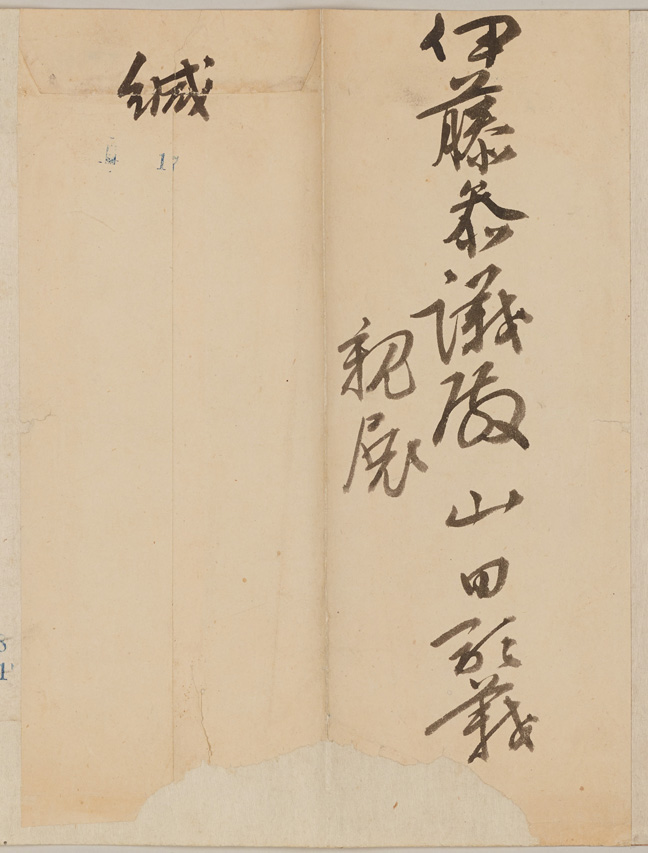 伊藤参議殿 山田顕義
親展
緘
17